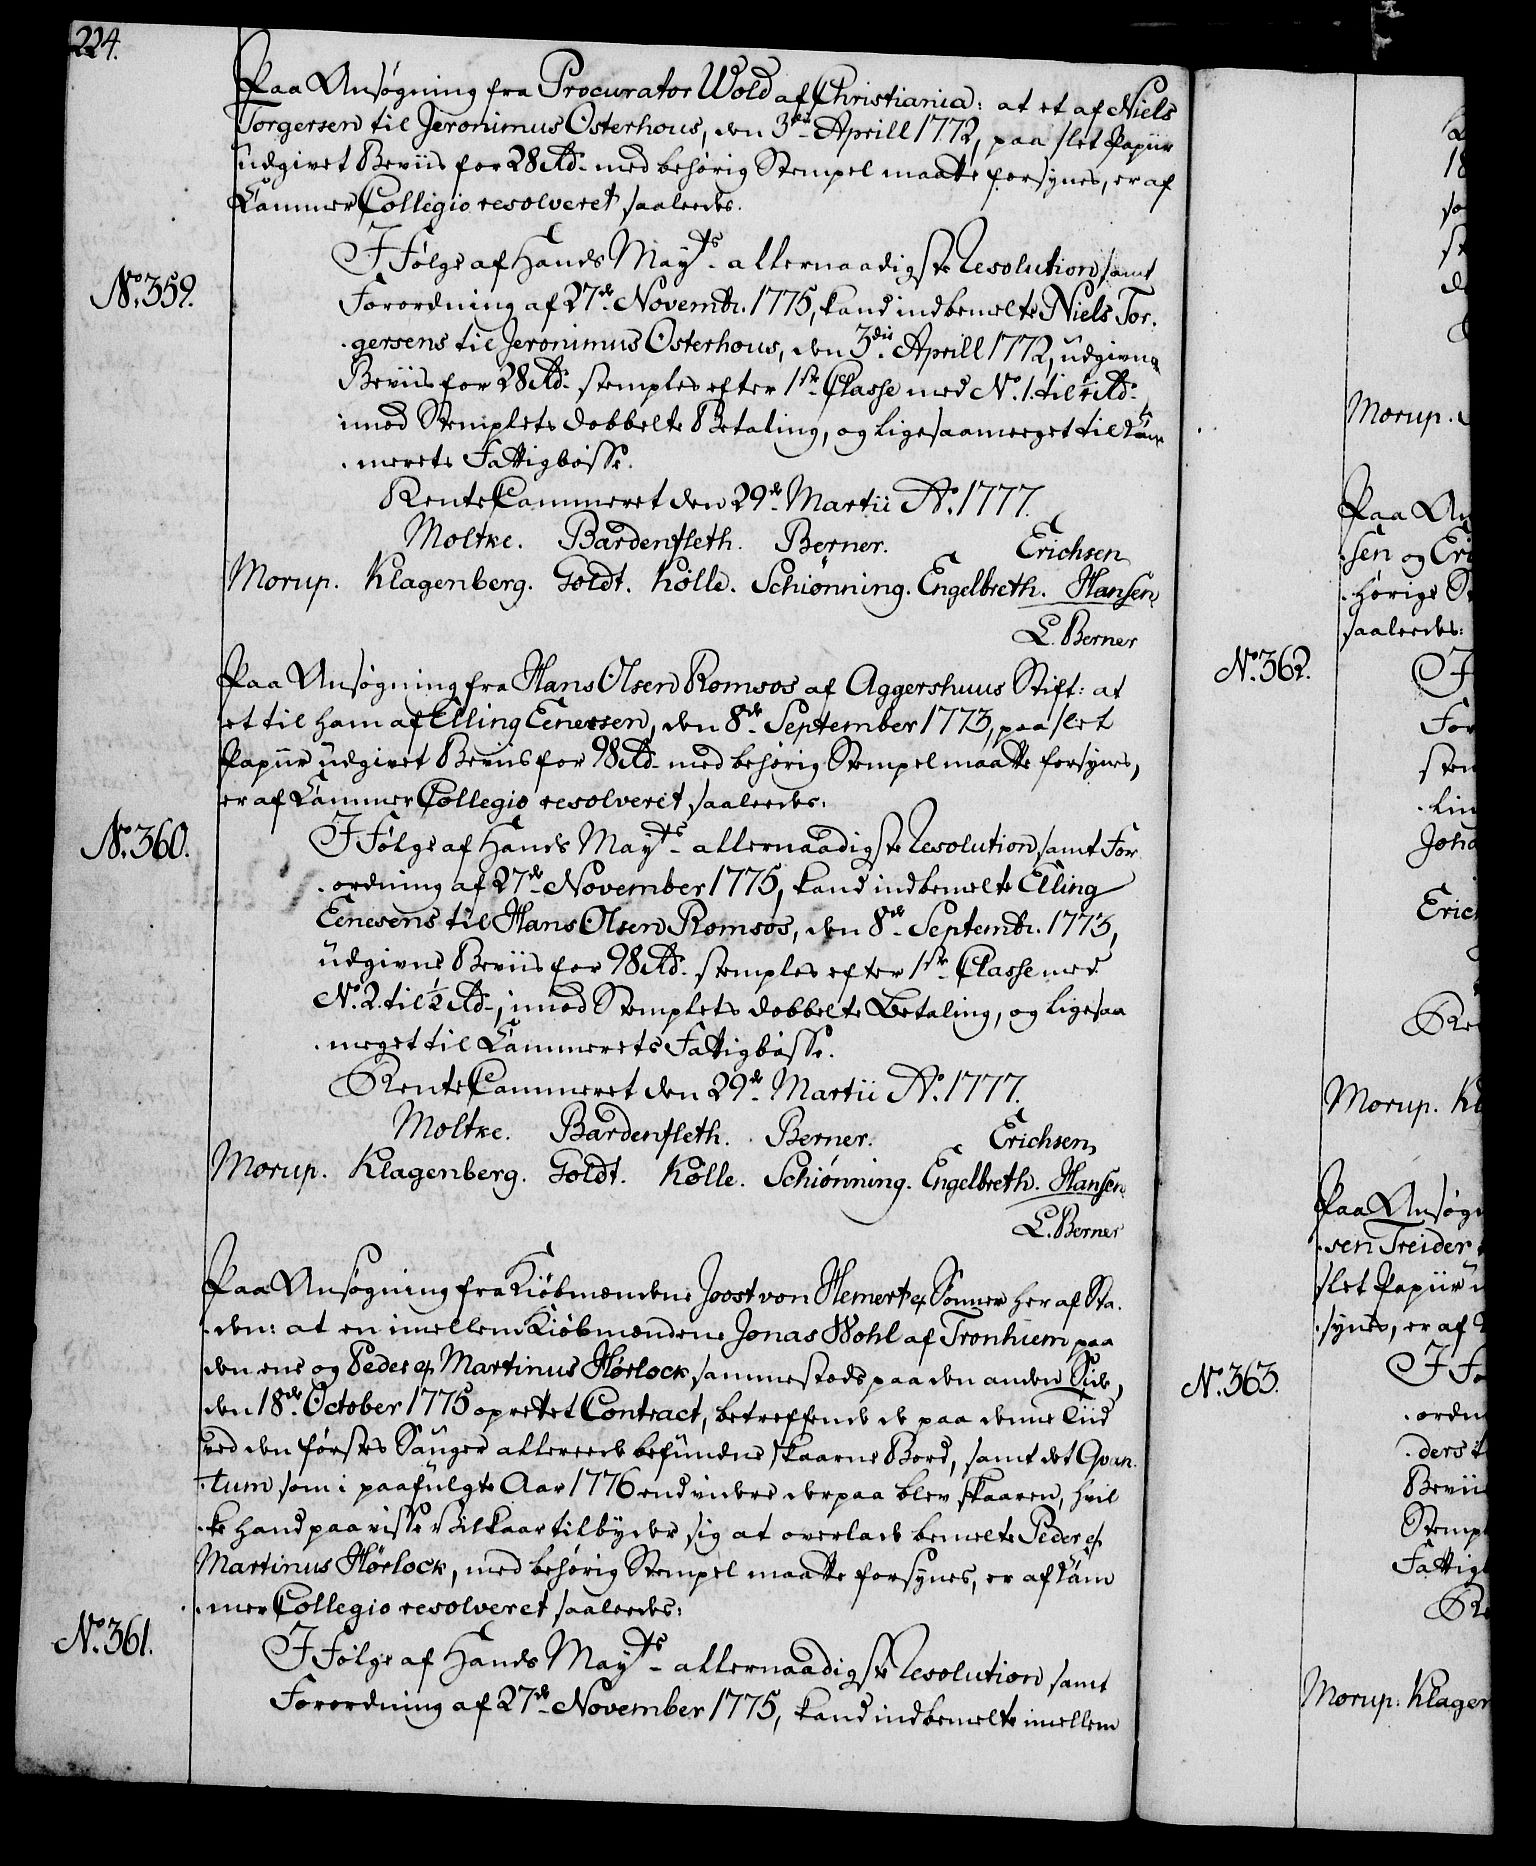 224.
Paa Ansøgning fra Procurator Wold af Christiania: at et af Niels
Torgersen til Jeronimus Osterhous, den 3die Aprill 1772, paa slet Papiir
udgivet Beviis for 28 Rd. med behørig Stempel maatte forsynes, er af
Cammer Collegio resolveret saaledes.
No. 359.
I Følge af Hands Mayts. allernaadigste Resolution samt
Forordning af 27de Novembr. 1775, kand indbemelte Niels Tor-
gersens til Jeronimus Osterhous, den 3die Aprill 1772, udgivne
Beviis for 28 Rd. stemples efter 1ste Classe med No. 1. til
imod Stemplets dobbelte Betaling, og ligesaameeget til Cam-
merets Fattigbøsse.
Rente Cammeret den 29de Martii Ao. 1777.
Moltke. Bardenfleth. Berner. Erichsen
Morup. Klagenberg. Goldt. Kölle. Schiönning. Engelbreth. Hansen
L. Berner
Paa Ansøgning fra Hans Olsen Romsos af Aggershuus Stift: at
et til ham af Elling Eenersen, den 8de September 1773, paa slet
Papiir udgivet Beviis for 98 Rd. med behørig Stempel maatte forsynes,
er af Cammer Collegio resolveret saaledes:
No. 360.
I Følge af Hands Mayts. allernaadigste Resolution samt For-
ordning af 27de November 1775, kand indbemelte Elling
Eenesens til Hans Olsen Romsos, den 8de Septembr. 1773,
udgivne Beviis for 98 Rd. stemples efter 1ste Classe med
No. 2. til ½ Rd., imod Stemplets dobbelte Betaling, og ligesaa
meget til Cammerets Fattigbøsse.
Rente Cammeret den 29de Martii Ao. 1777.
Moltke. Bardenfleth. Berner. Erichsen
Morup. Klagenberg. Goldt. Kölle. Schiönning. Engelbreth. Hansen
L. Berner
Paa Ansøgning fra Kiöbmændene Joost von Hemert & Sönner her af Sta-
den: at en imellem Kiöbmændene Jonas Wohl af Tronhiem paa
den ene og Peder & Martinus Hørlock sammesteds paa den anden Side,
den 18de October 1775 oprettet Contract, betreffende de paa denne Tiid
ved den førstes Sauger allereede befundne skaarne Bord, samt det Qvan-
tum som i paafulgte Aar 1776 end videre derpaa blev skaaren, hvil-
ke hand paa visse Vilkaar tilbyder sig at overlade bemelte Peder &
Martinus Hørlock, med behørig Stempel maatte forsynes, er af Cam-
mer Collegio resolveret saaledes:
No. 361.
I Følge af Hands Mayts. allernaadigste Resolution samt
Forordning af 27de November 1775, kand indbemelte imellem
18
Morup.
Paa An
sen og Er
hørige St
saaledes:
No. 362.
I
For
stem
lin
Joha
Erich
Re
Morup. Kl
Paa Ansøgn
sen Treider
slet Papiir u
synes, er af
No. 363.
I Fø
ordn
ders t
Bevii
Stempl
Fattigb
Re
Morup. Klagen